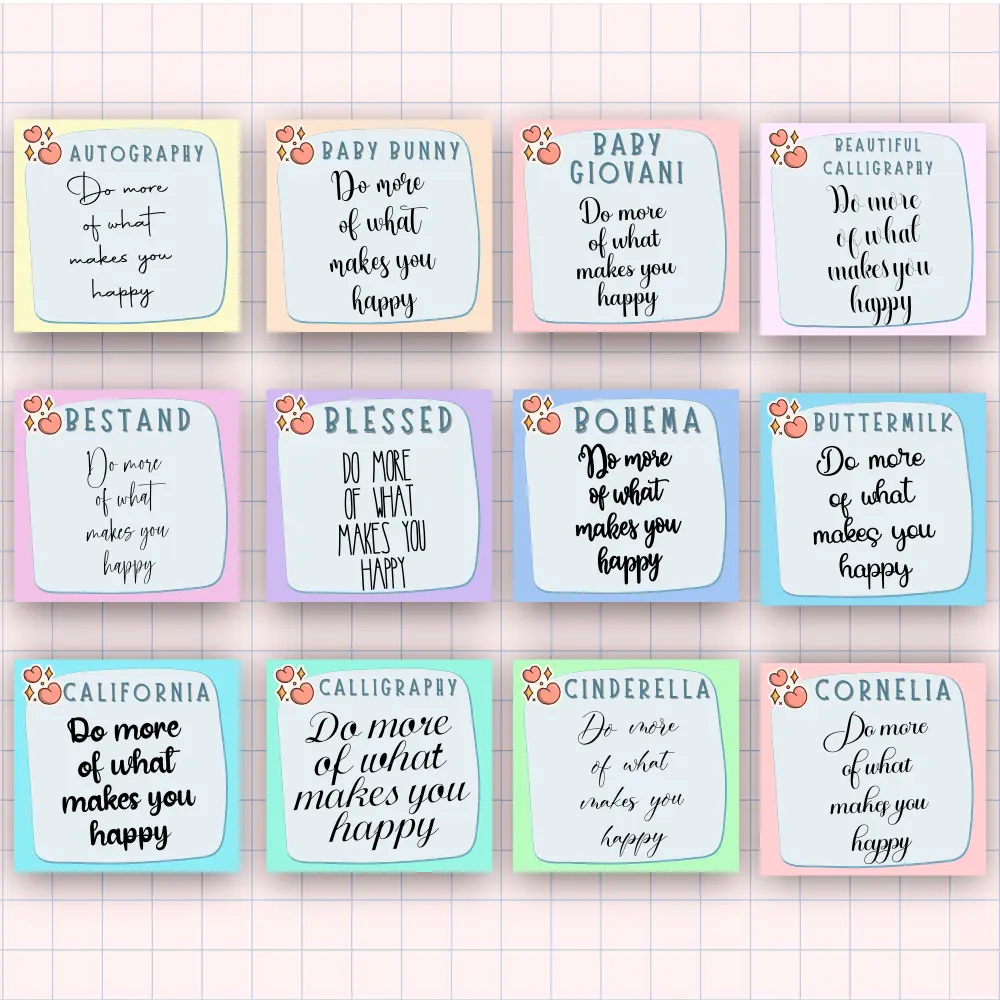 AUTOGRAPHY
Do more
of what
makes you
happy
BABY BUNNY
Do more
of what
makes you
happy
BABY
GIOVANI
Do more
of what
makes you
happy
BEAUTIFUL
CALLIGRAPHY
Do more
of what
makes you
happy
BESTAND
Do more
of what
makes you
happy
BLESSED
DO MORE
OF WHAT
MAKES YOU
HAPPY
BOHEMA
Do more
of what
makes you
happy
BUTTERMILK
Do more
of what
makes you
happy
CALIFORNIA
Do more
of what
makes you
happy
CALLIGRAPHY
Do more
of what
makes you
happy
CINDERELLA
Do more
of what
makes you
happy
CORNELIA
Do more
of what
makes you
happy